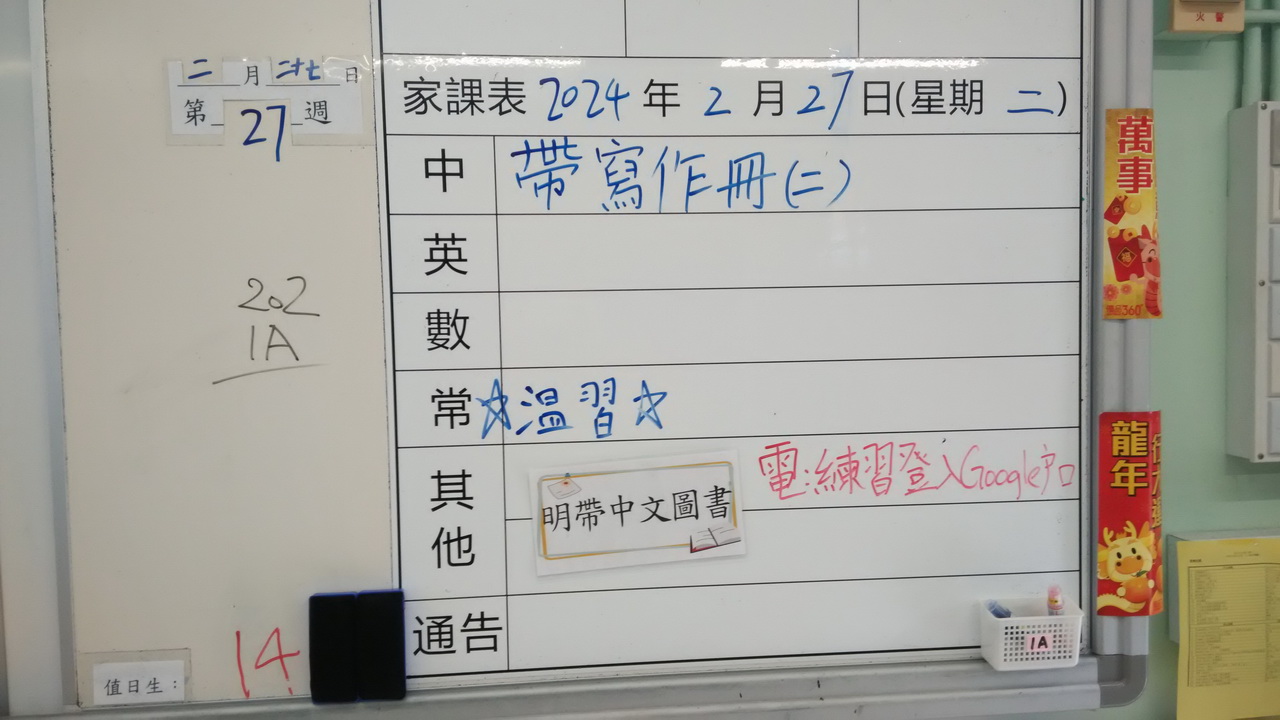 二月二十七日
第27週
202
1A
值日生：
14
家課表 2024年2月27日(星期二)
中 帶寫作冊(二)
英
數
常 ☆溫習☆
其他
明帶中文圖書
電:練習登入Google戶口
通告
1A
火警
萬事
龍年